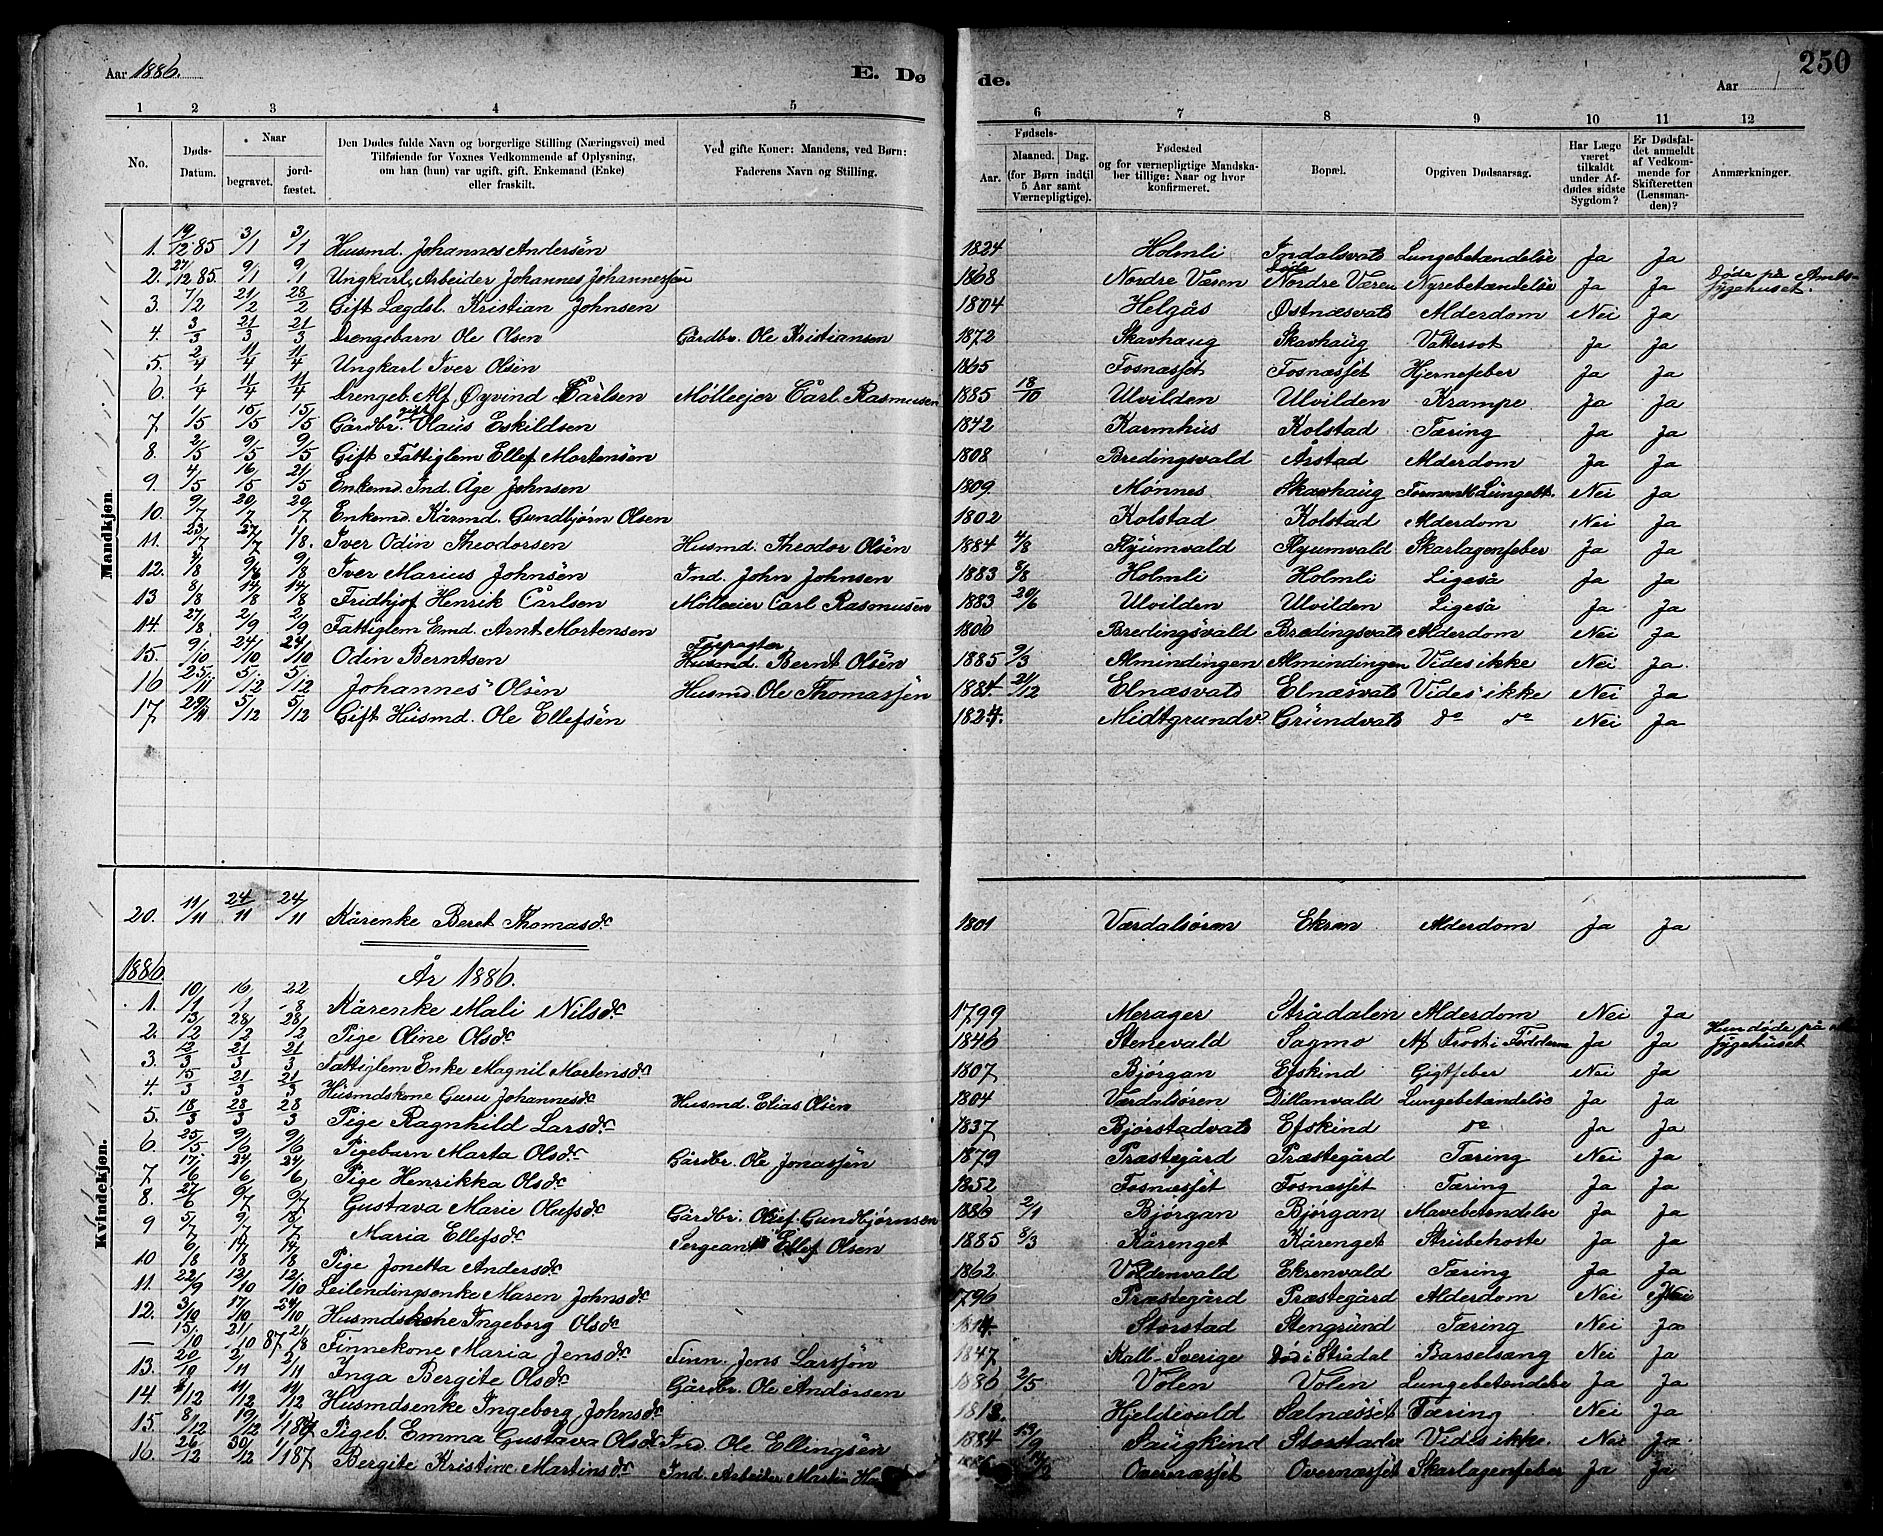 Aar 1886. E. Dø de. Aar 250
1 2 3 4 5 6 7 8 9 10 11 12
No. Døds-Datum. Naar begravet. jord-fæstet. Den Dødes fulde Navn og borgerlige Stilling (Næringsvei) med Tilføiende for Voxnes Vedkommende af Oplysning, om han (hun) var ugift, gift, Enkemand (Enke) eller fraskilt. Ved gifte Koner: Mandens, ved Børn: Faderens Navn og Stilling. Fødsels- Aar. Maaned. Dag. (for Børn indtil 5 Aar samt Værnepligtige). Fødested og for værnepligtige Mandskaber tillige: Naar og hvor konfirmeret. Bopæl. Opgiven Dødsaarsag. Har Læge været tilkaldt under Afdødes sidste Sygdom? Er Dødsfaldet anmeldt af Vedkommende for Skifteretten (Lensmanden)? Anmærkninger.
Mandkjøn.
1. 19/12 85 3/1 3/1 Husmd. Johannes Andersen 1824 Holmli Indalsvald Lungebetændelse Ja Ja
2. 27/12 85 9/1 9/1 Ungkarl, Arbeider Johannes Johannessen 1868 Nordre Væren Nordre Væren Nyrebetændelse Ja Ja Døde på Amtssygehuset.
3. 7/2 21/2 28/2 Gift Lægdsl. Kristian Johnsen 1804 Helgås Østnæsvald Alderdom Nei Ja
4. 3/3 21/3 21/3 Drengebarn Ole Olsen Gårdbr. Ole Kristiansen 1872 Skavhaug Skavhaug Vattersot Ja Ja
5. 2/4 11/4 11/4 Ungkarl Iver Olsen 1865 Fosnæsset Fosnæsset Hjernefeber Ja Ja
6. 1/4 11/4 11/4 Drengeb. Alf Øyvind Carlsen Mølleejer Carl Rasmusen 1885 18/10 Ulvilden Ulvilden Krampe Ja Ja
7 1/5 15/5 15/5 Gårdbr. gift Olaus Eskildsen 1842 Karmhus Kolstad Tæring Ja Ja
8. 2/5 9/5 9/5 Gift Fattiglem Ellef Mortensen 1808 Bredingsvald Årstad Alderdom Ja Ja
9. 4/5 16/5 21/5 Enkemd. Ind. Åge Johnsen 1809 Mønnes Skavhaug Forment Lungebt. Nei Ja
10. 9/7 20/7 20/7 Enkemd. Kårmd. Gundbjørn Olsen 1802 Kolstad Kolstad Alderdom Nei Ja
11. 23/7 27/7 1/8. Iver Odin Theodorsen Husmd. Theodor Olsen 1884 4/8 Flyumvald Flyumvald Skarlagenfeber Ja Ja
12. 4/8 9/8 9/8 Iver Marius Johnsen Ind. John Johnsen 1883 8/8 Holmli Holmli Ligeså Ja Ja
13 8/8 14/8 14/8 Fridhjof Henrik Carlsen Mølleeier Carl Rasmusen 1883 20/6 Ulvilden Ulvilden Ligeså Ja Ja
14. 27/8 2/9 2/9 Fattiglem Emd. Arnt Mortensen 1806 Bredingsvald Bredingsvald Alderdom Nei Ja
15. 9/10 24/10 24/10 Odin Berntsen Forpagter Husmd. Bernt Olsen 1885 9/3 Almindingen Almindingen Vides ikke Nei Ja
16 25/11 5/12 5/12 Johannes Olsen Husmd. Ole Thomassen 1884 21/12 Elnæsvald Elnæsvald Vides ikke Nei Ja
17 29/11 5/12 5/12 Gift Husmd. Ole Ellefsen 1824. Midtgrundv. Grundvald do do Nei Ja
Kvindekjøn.
20. 11/11 24/11 24/11 Kårenke Beret Thomasdr. 1801 Værdalsøren Ekren Alderdom Ja Ja
1886. År 1886.
1. 10/1 16/1 22/8 Kårenke Mali Nilsdr. 1799 Merager Strådalen Alderdom Nei Ja
2. 13/2 28/2 28/2 Pige Oline Olsdr. 1846 Stenevald Sagmo Af Frost i Fødderne Ja Ja Hun døde på sygehuset
3. 12/3 21/3 21/3 Fattiglem Enke Magnil Martensdr. 1807 Bjørgan Efskind Gigtfeber Nei Ja
4. 15/3 21/3 21/3 Husmdskone Guru Johannesdr. Husmd. Elias Olsen 1804 Værdalsøren Dillanvald Lungebetændelse Ja Ja
5. 18/3 28/3 28/3 Pige Ragnhild Larsdr. 1837 Bjørstadvald Efskind do Ja Ja
6 25/5 9/6 9/6 Pigebarn Marta Olsdr. Gårdbr. Ole Jonassen 1879 Præstegård Præstegård Tæring Nei Ja
7 17/6 24/6 24/6 Pige Henrikka Olsdr. 1852 Fosnæsset Fosnæsset Tæring Ja Ja
8. 27/6 9/7 9/7 Gustava Marie Olufsdr. Gårdbr. Oluf Gundbjørnsen 1886 2/1 Bjørgan Bjørgan Mavebetændelse Ja Ja
9 5/7 9/7 18/7 Maria Ellefsdr. Sergeant Ellef Olsen 1885 8/3 Kårenget Kårenget Strubehoste Ja Ja
10 6/8 17/8 14/8 Pige Jonetta Andersdr. 1862 Voldenvald Ekrenvald Tæring Ja Ja
11. 22/9 12/10 12/10 Leilendingsenke Maren Johnsdr. 1796 Præstegård Præstegård Alderdom Nei Nei
12. 3/10 17/10 24/10 Husmdskone Ingeborg Olsdr. 1814 Storstad Stengrund Tæring Nei Ja
— 15/10 21/10 87 21/8 Finnekone Maria Jensdr. Finn. Jens Larssøn 1847 Kall-Sverige Død i Strådal Barselsang Nei Ja
13. 20/10 2/11 2/11 Inga Bergite Olsdr. Gårdbr. Ole Andersen 1886 2/5 Volen Volen Lungebetændelse Ja Ja
14. 8/12 11/12 11/12 Husmdsenke Ingeborg Johnsdr. 1813. Hjeldevald Sælnæsset Tæring Nei Ja
15. 8/12 19/12 1/1 87 Pigeb. Emma Gustava Olsdr. Ind. Ole Ellingsen 1884 13/9 Saugkind Storstad Vides ikke. Nei Ja
16. 26/12 30/12 1/1 87 Bergite Kristine Martinsdr. Ind. Arbeider Martin Overnæsset Overnæsset Skarlagenfeber Ja Ja